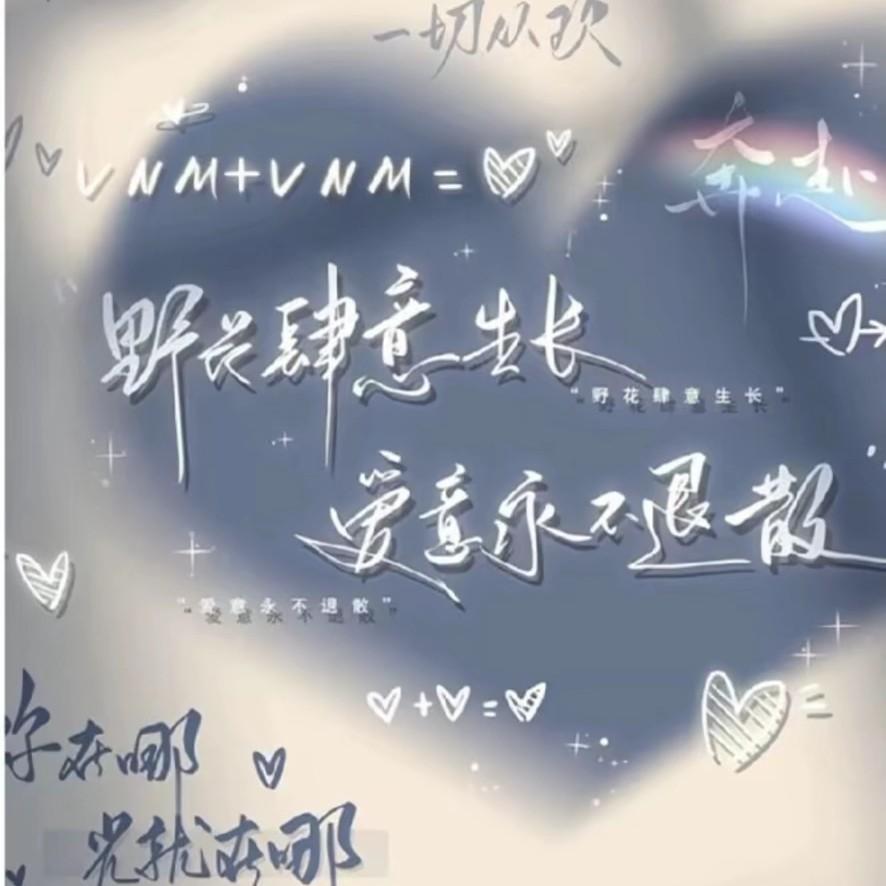 一切从欢
奔赴
VNM+VNM=
野花肆意生长
"野花肆意生长"
爱意永不退散
"爱意永不退散"
+ =
=
你在哪
光就在哪